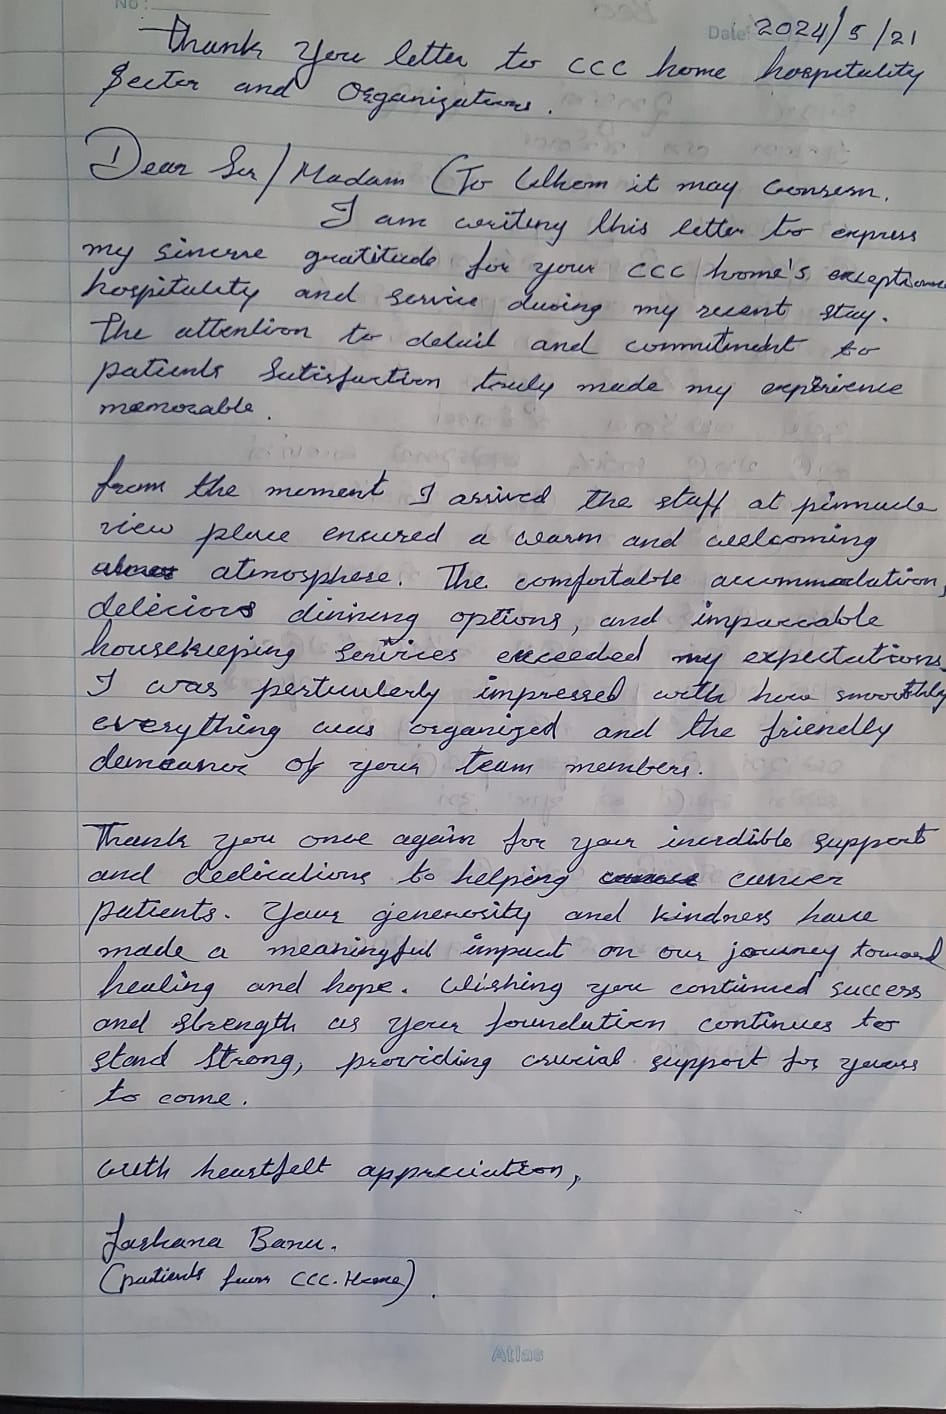 No:
Date: 2024/5/21
Thank you letter to CCC home hospitality
Sector and Organizations.
Dear Sir/Madam (To Whom it may Consern.
I am writing this letter to express
my sincere gratitude for your CCC home's exceptional
hospitality and service during my recent stay.
The attention to detail and commitment to
patients Satisfaction truly made my experience
memorable.
from the moment I arrived the staff at pinnacle
view place ensured a warm and welcoming
atmosphere. The comfortable accommodation,
delecious dinning options, and impaccable
housekeeping services exceeded my expectations.
I was perticulerly impressed with how smoothly
everything was organized and the friendly
demeanor of your team members.
Thank you once again for your incredible support
and dedications to helping cancer
patients. Your generosity and kindness have
made a meaningful impact on our journey toward
healing and hope. Wishing you continued success
and strength as your foundation continues to
stand strong, providing crucial support for years
to come.
with heartfelt appreciation,
Banu.
(patients from CCC. Home).
Atlas